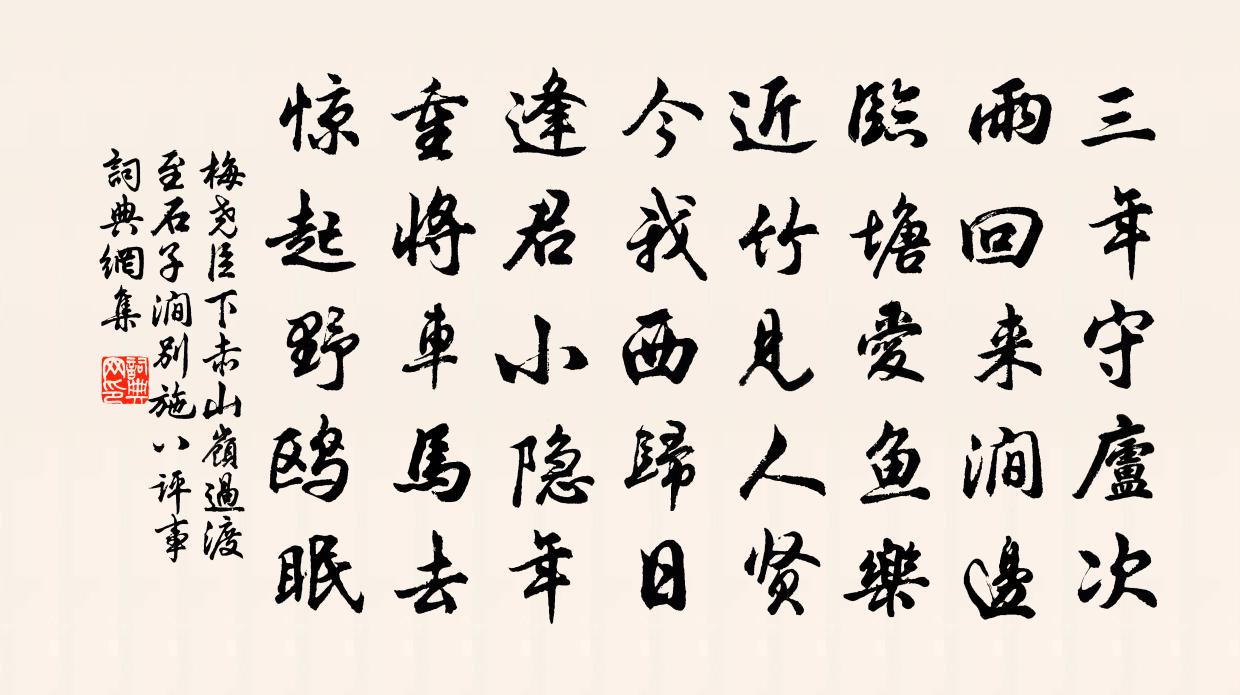 三年守廬次
雨回来澗邊
臨塘愛鱼樂
近竹見人贤
今我西歸日
逢君小隐年
重將車馬去
惊起野鸥眠
梅尧臣下赤山嶺過渡
至石子澗別施八評事
詞典網集
詞典网印